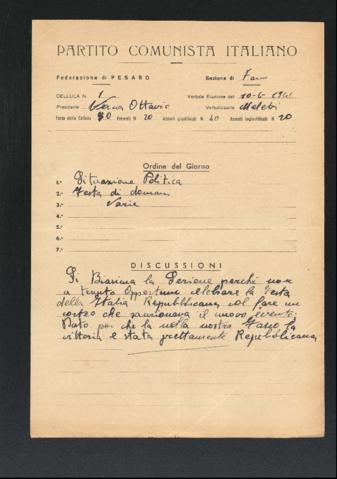 PARTITO COMUNISTA ITALIANO
Federazione di PESARO Sezione di Fano
CELLULA N. 1 Verbale Riunione del 10-6-1946
Presidente Verna Ottavio Verbalizzante
Forza della Cellula 80 Presenti N. 20 Assenti giustificati N. 40 Assenti ingiustificati N. 20
Ordine del Giorno
1.° Situazione Politica
2.° Festa di domani
3.° Varie
4.°
5.°
6.°
7.°
DISCUSSIONI
Si Biasima la Sezione perché non
a tenuto Opportuno celebrare la Festa
della Italia Repubblicana col fare un
corteo che sanzionava il nuovo evento.
Dato poi che la nella nostra Fano la
vittoria è stata prettamente Repubblicana